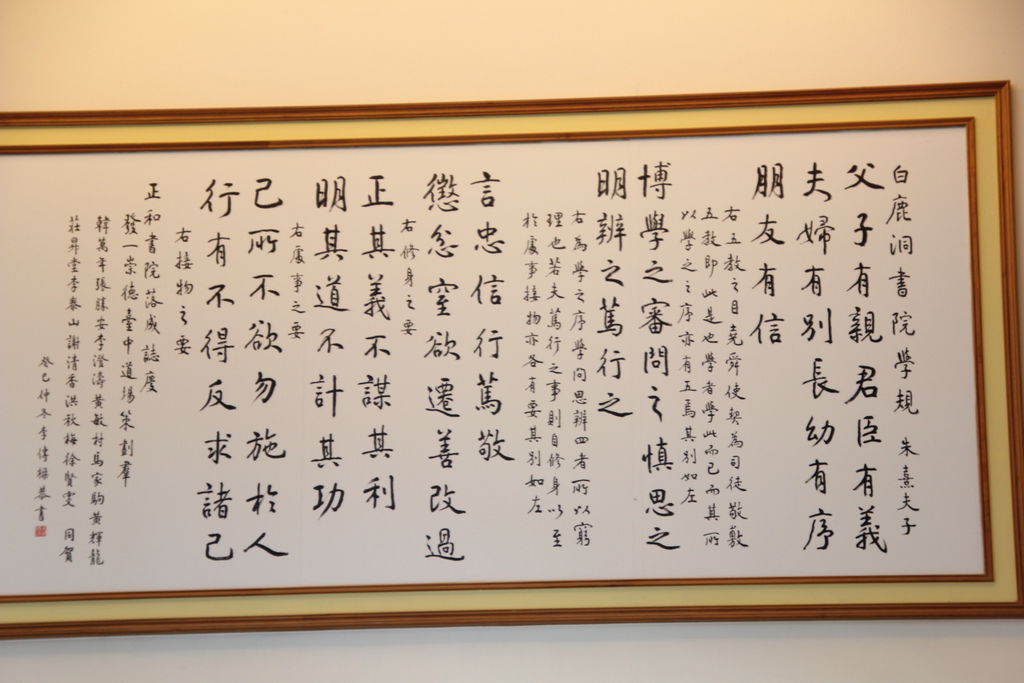 白鹿洞書院學規 朱熹夫子
父子有親君臣有義
夫婦有別長幼有序
朋友有信
右五教之目堯舜使契為司徒敬敷
五教即此是也學者學此而已而其所
以學之之序亦有五焉其別如左
博學之審問之慎思之
明辨之篤行之
右為學之序學問思辨四者所以窮
理也若夫篤行之事則自修身以至
於處事接物亦各有要其別如左
言忠信行篤敬
懲忿窒欲遷善改過
右修身之要
正其義不謀其利
明其道不計其功
右處事之要
己所不欲勿施於人
行有不得反求諸己
右接物之要
正和書院落成誌慶
發一崇德臺中道場策劃羣
韓萬年張勝安李澄濤黃敏村馬家駒黃輝龍
莊昇堂李泰山謝清香洪秋梅徐賢雯 同賀
癸巳仲冬李傳恭書